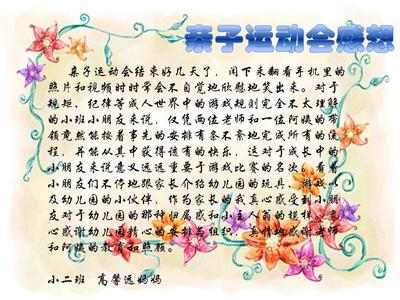 亲子运动会感想
亲子运动会结束好几天了，闲下来翻看手机里的
照片和视频时时常会不自觉地欣慰地笑出来。对于
规矩、纪律等成人世界中的游戏规则完全不太理解
的小班小朋友来说，仅凭两位老师和一位阿姨的带
领竟然能按着事先的安排有条不紊地完成所有的流
程，并能从其中获得该有的快乐，这对于成长中的
小朋友来说意义远远重要于游戏比赛的名次。看着
小朋友们不停地跟家长介绍幼儿园的玩具、游戏以
及幼儿园的小伙伴，作为家长的我真心感受到小朋
友对于幼儿园的那种归属感和小主人翁的模样。衷
心感谢幼儿园精心的安排与组织，真情地感谢老师
和阿姨的教育和照顾。
小二班 高馨远妈妈